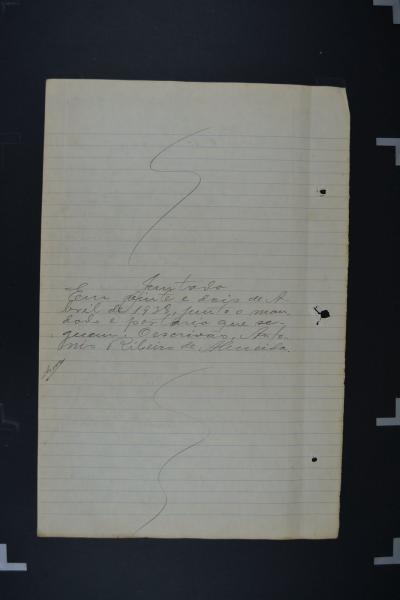 Juntada
Em vinte e dois de A-
bril de 1923, junto o man-
dado e portaria que se-
guem. O escrivão, Anto-
nio Ribeiro de Almeida.